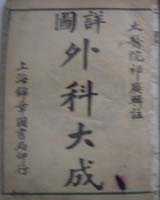 太醫院祁廣麟註
詳圖
外科大成
上海錦章圖書局印行